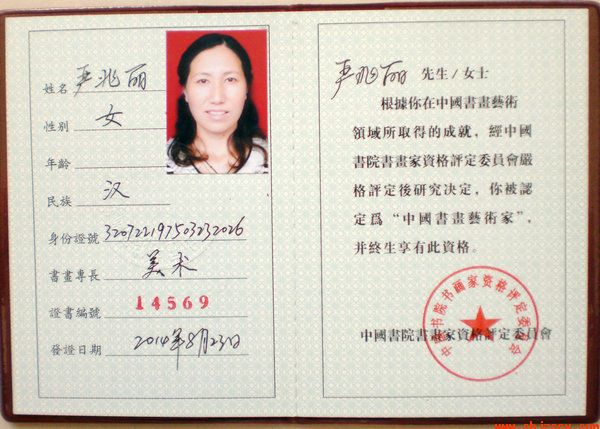 姓名 严兆丽
性别 女
年龄
民族 汉
身份證號 320722197503232026
書畫專長 美术
證書編號 14569
發證日期 2014年8月23日
严兆丽 先生/女士
根據你在中國書畫藝術
領域所取得的成就，經中國
書院書畫家資格評定委員會嚴
格評定後研究决定，你被認
定爲“中國書畫藝術家”，
并終生享有此資格。
中國書院書畫家資格評定委員會
中國书院书画家资格评定委员会